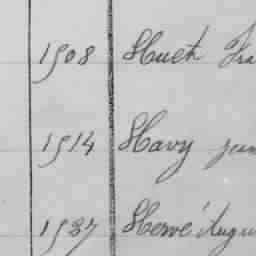 1908 Huet Fra
1914 Havy jean
1927 Hervé Augu